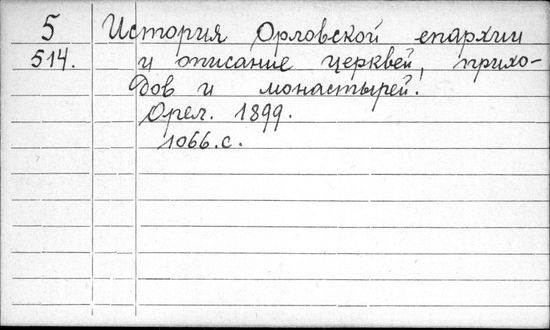 5 История Орловской епархии
514. и описание церквей, прихо-
дов и монастырей.
Орел. 1899.
1066.с.